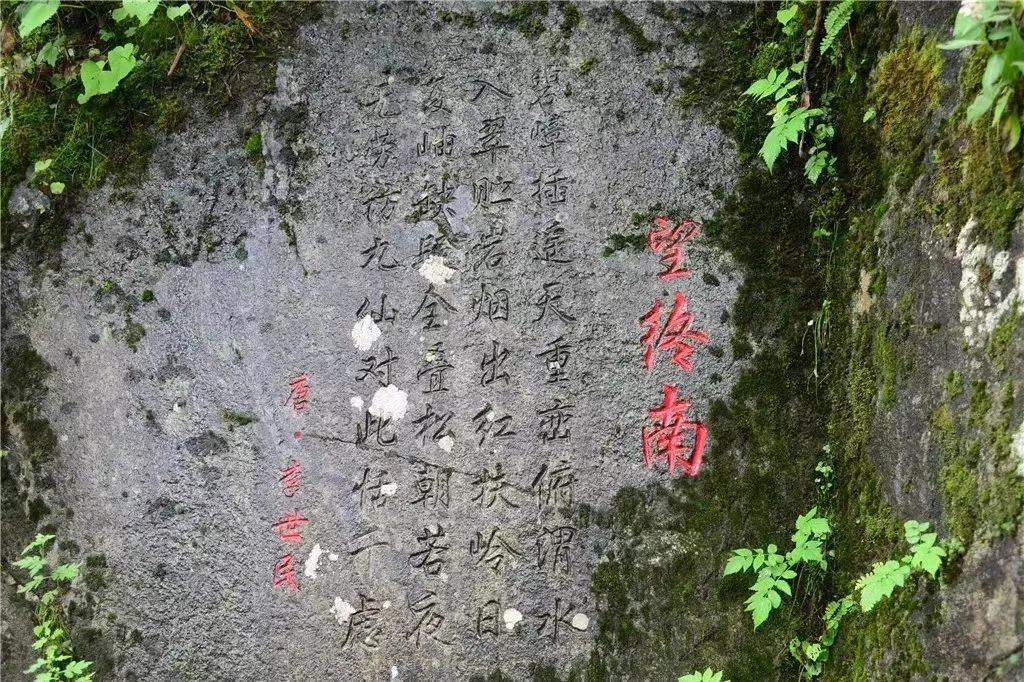 望终南
碧嶂插遥天重峦俯渭水
入翠贮岩烟出红扶岭日
复岫缺疑全叠松朝若夜
无劳访九仙对此恬千虑
唐·李世民